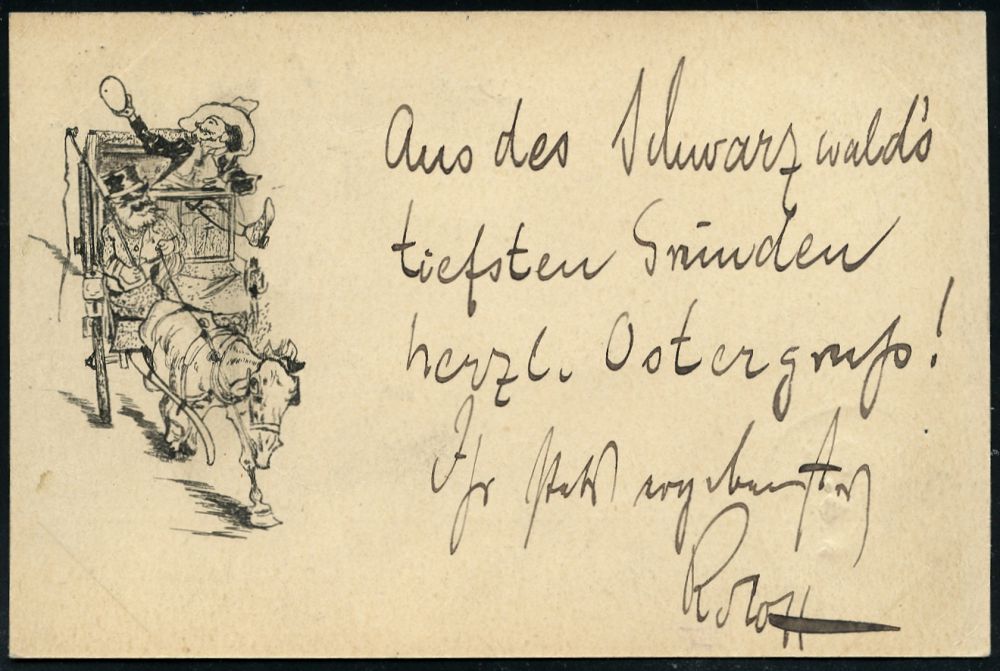 Aus des Schwarzwald's
tiefsten Gründen
herzl. Ostergruß!
Ihr stets ergebenster
Roloff